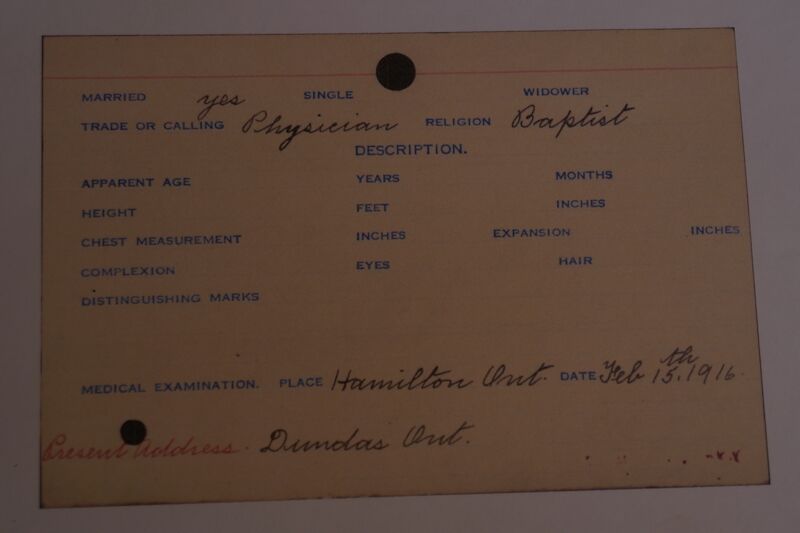 MARRIED yes SINGLE WIDOWER
TRADE OR CALLING Physician RELIGION Baptist
DESCRIPTION.
APPARENT AGE YEARS MONTHS
HEIGHT FEET INCHES
CHEST MEASUREMENT INCHES EXPANSION INCHES
COMPLEXION EYES HAIR
DISTINGUISHING MARKS
MEDICAL EXAMINATION. PLACE Hamilton Ont. DATE Feb 15th. 1916.
Present Address. Dundas Ont.